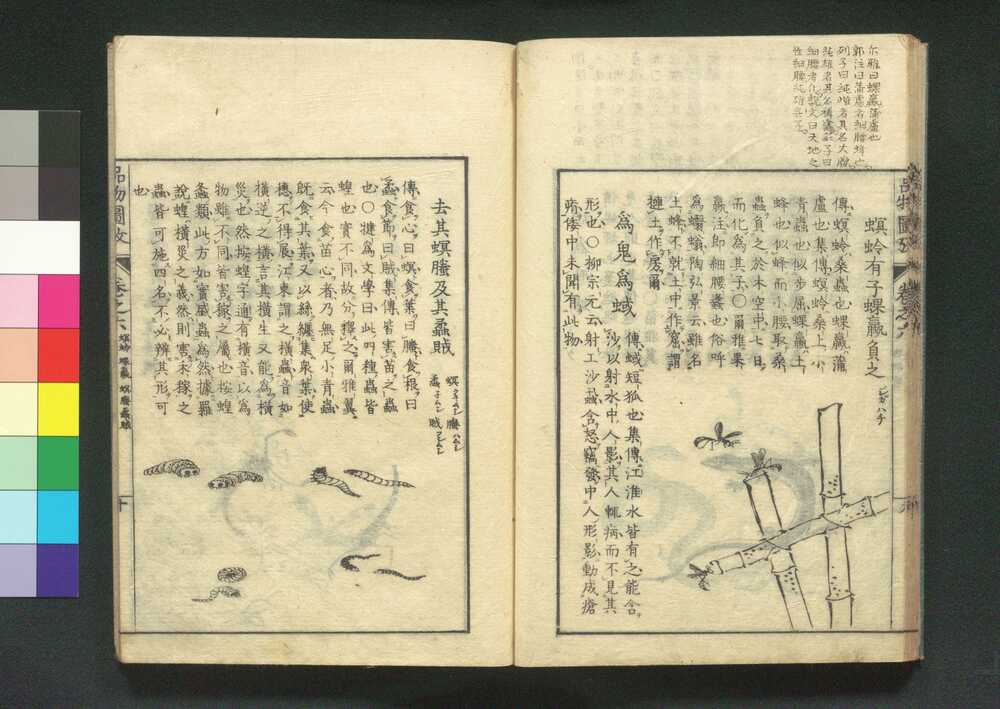 尓雅曰螺蠃蒲盧也
郭注曰蒲盧者細腰蜂也
列子曰純雌者其名大腰
純雄者其名稺蜂莊子曰
細腰者化說文曰天地之
性細腰純雄無子
螟蛉有子蜾蠃負之
ジガハチ
傳螟蛉桑蟲也蜾蠃蒲
盧也集傳螟蛉桑上小
青蟲也似步屈蜾蠃土
蜂也似蜂而小腰取桑
蟲負之於木空中七日
而化為其子〇爾雅果
蠃注即細腰蠭也俗呼
為蠮螉陶弘景云雖名
土蜂不就土中作窟謂
摙土作房爾
為鬼為蜮
傳蜮短狐也集傳江淮水皆有之能含
沙以射水中人影其人輒病而不見其
形也〇柳宗元云射工沙蝨含怒竊發中人形影動成瘡
痏倭中未聞有此物
品物圖攷
卷之六
去其螟螣及其蟊賊
螟 ズイムシ 螣 ハムシ
蟊 子ムシ 賊 フシムシ
傳食心曰螟食葉曰螣食根曰
蟊食節曰賊集傳皆害苗之蟲
也〇犍為文學曰此四種蟲皆
蝗也實不同故分釋之爾雅翼
云今食苗心者乃無足小青蟲
既食其葉又以絲纏集衆葉使
穗不得展江東謂之橫蟲音如
橫逆之橫言其橫生又能為橫
災也然按蝗字通有橫音以為
物雖不同首害稼之屬也按蝗
螽類此方如實盛蟲為然據羅
說蝗橫災之義然則害禾稼之
蟲皆可施四名不必辨其形可
也
品物圖攷
卷之六
螟蛉 蜾蠃 螟螣蟊賊
十